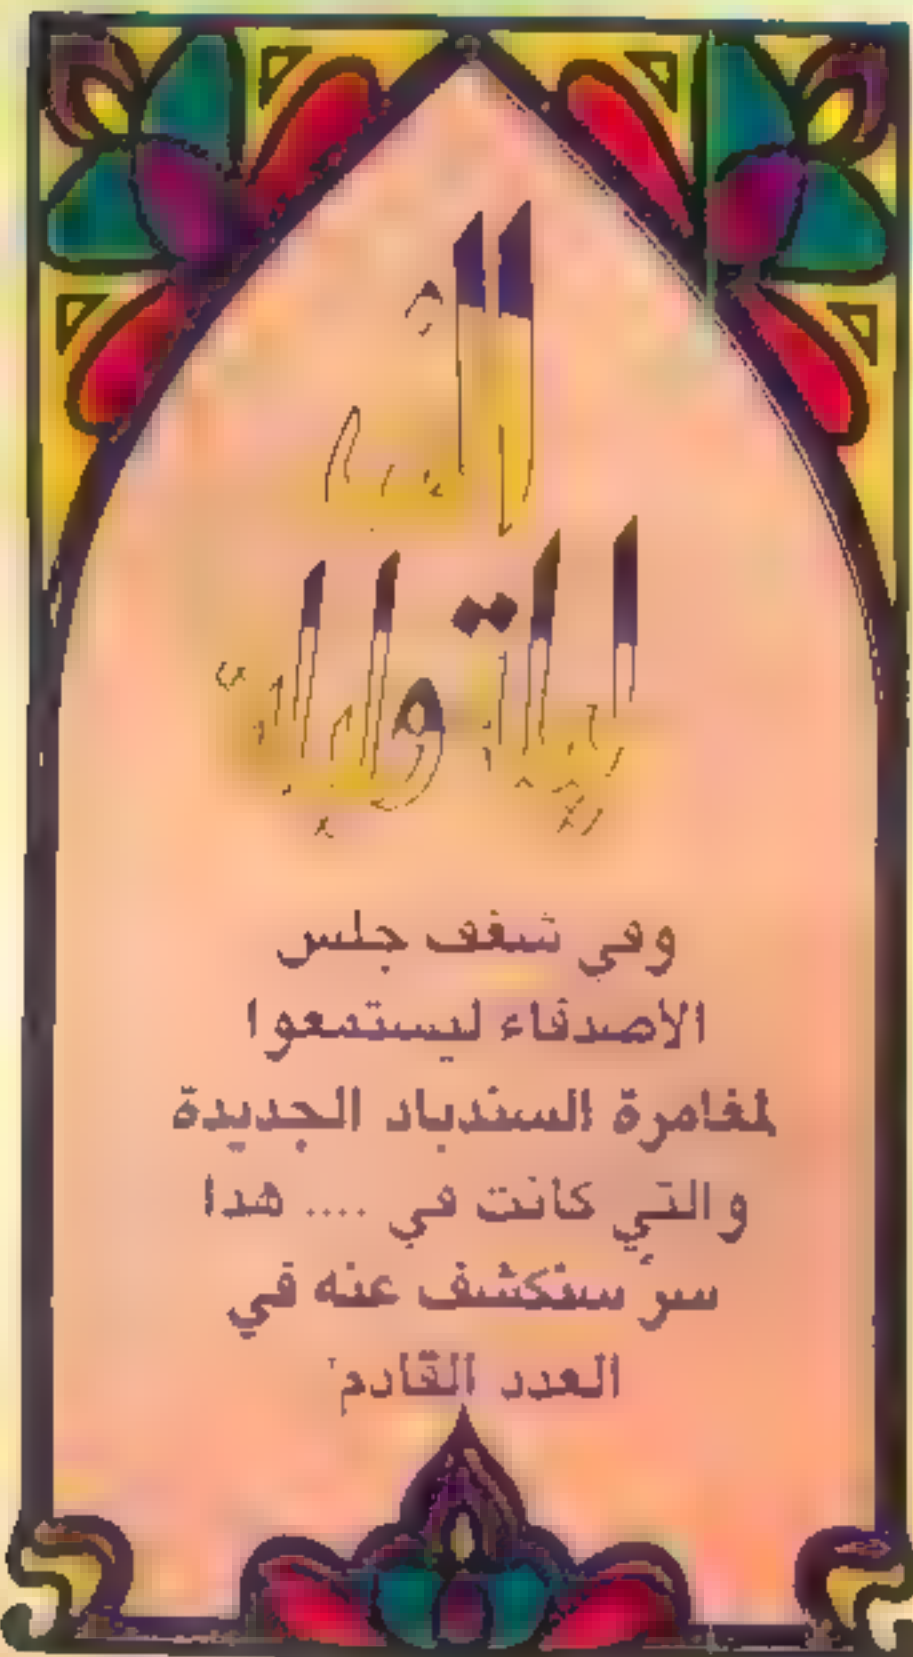 وفي شغف جلس
الأصدقاء ليستمعوا
لمغامرة السندباد الجديدة
والتي كانت في .... هذا
سرّ سنكشف عنه في
العدد القادم